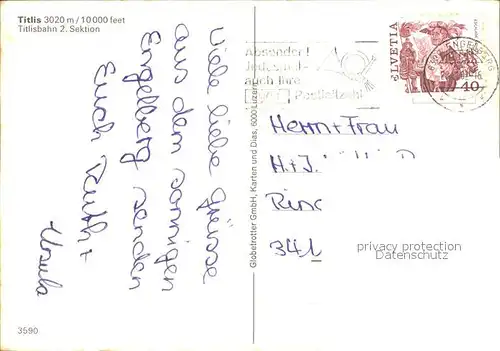 Titlis 3020 m / 10 000 feet
Titlisbahn 2. Sektion
Viele liebe Grüsse
aus dem sonnigen
Engelberg senden
Euch Ruth +
Ursula
3590
Globetrotter GmbH, Karten und Dias, 6000 Luzern
Absender!
auch Ihre
Postleitzahl
HELVETIA
40
ENGELBERG
Herrn + Frau
H + J
341
privacy protection
Datenschutz